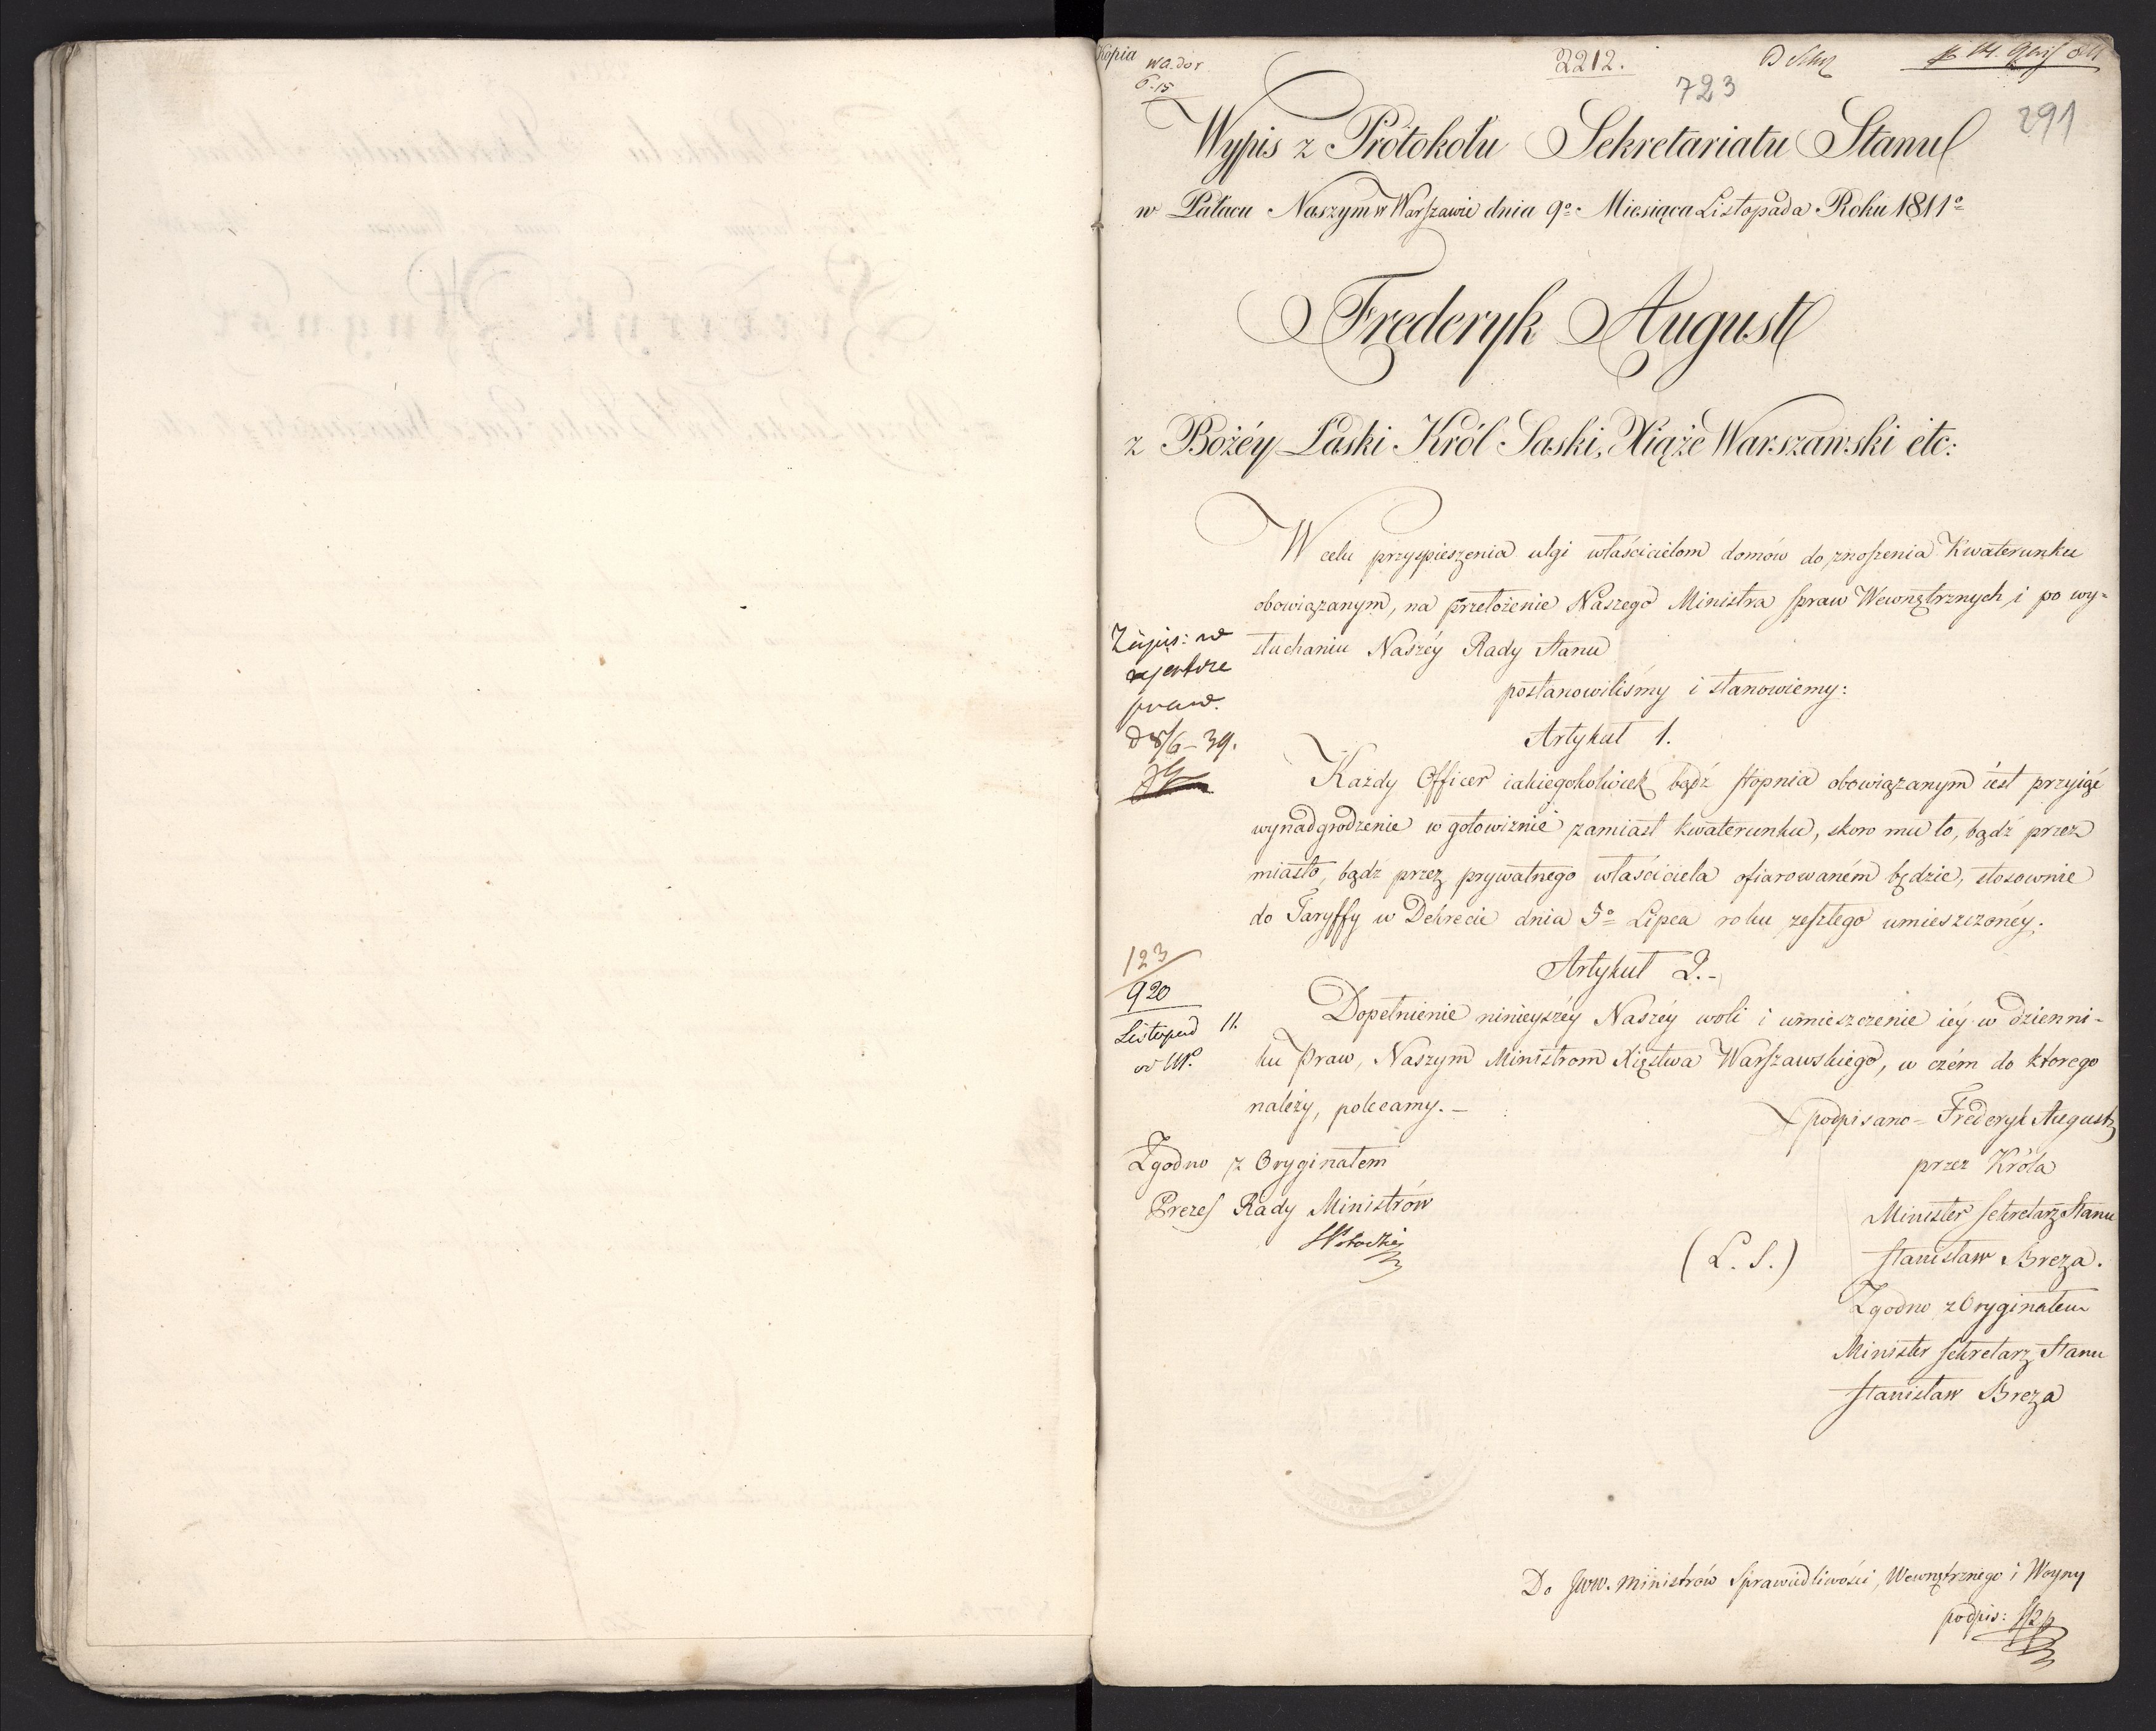 Kopia
2212.
723
291
Wypis z Protokołu Sekretariatu Stanu
w Pałacu Naszym w Warszawie dnia 9º Miesiąca Listopada Roku 1811º
Frederyk August
z Bożéy Łaski Król Saski, Xiąże Warszawski etc:
W celu przyspieszenia ulgi właścicielom domów do znoszenia Kwaterunku
obowiązanym, na przełożenie Naszego Ministra Spraw Wewnętrznych i po wy=
słuchaniu Naszéy Rady Stanu
postanowiliśmy i stanowiemy:
Artykuł 1.
Każdy Officer iakiegokolwiek bądź stopnia obowiązanym iest przyiąć
wynadgrodzenie w gotowiznie zamiast kwaterunku, skoro mu to, bądź przez
miasto, bądź przez prywatnego właściciela ofiarowaném będzie, stosownie
do Taryffy w Dekrecie dnia 5º Lipca roku zeszłego umieszczonéy.
Artykuł 2.-
Dopełnienie ninieyszéy Naszéy woli i umieszczenie iéy w dzienni-
ku Praw, Naszym Ministrom Xięstwa Warszawskiego, w czém do ktorego
należy, polecamy.-
Zapis: w
rejestrze
praw.
d 8/6-39.
123
920
Listopad 11.
podpisano = Frederyk August
przez Króla
Minister Sekretarz Stanu
(L. S.) Stanisław Breza.
Zgodno z Oryginałem
Minister Sekretarz Stanu
Stanisław Breza
Zgodno z Oryginałem
Prezes Rady Ministrów
Do JWW. Ministrów Sprawiedliwości, Wewnętrznego i Woyny
podpis: